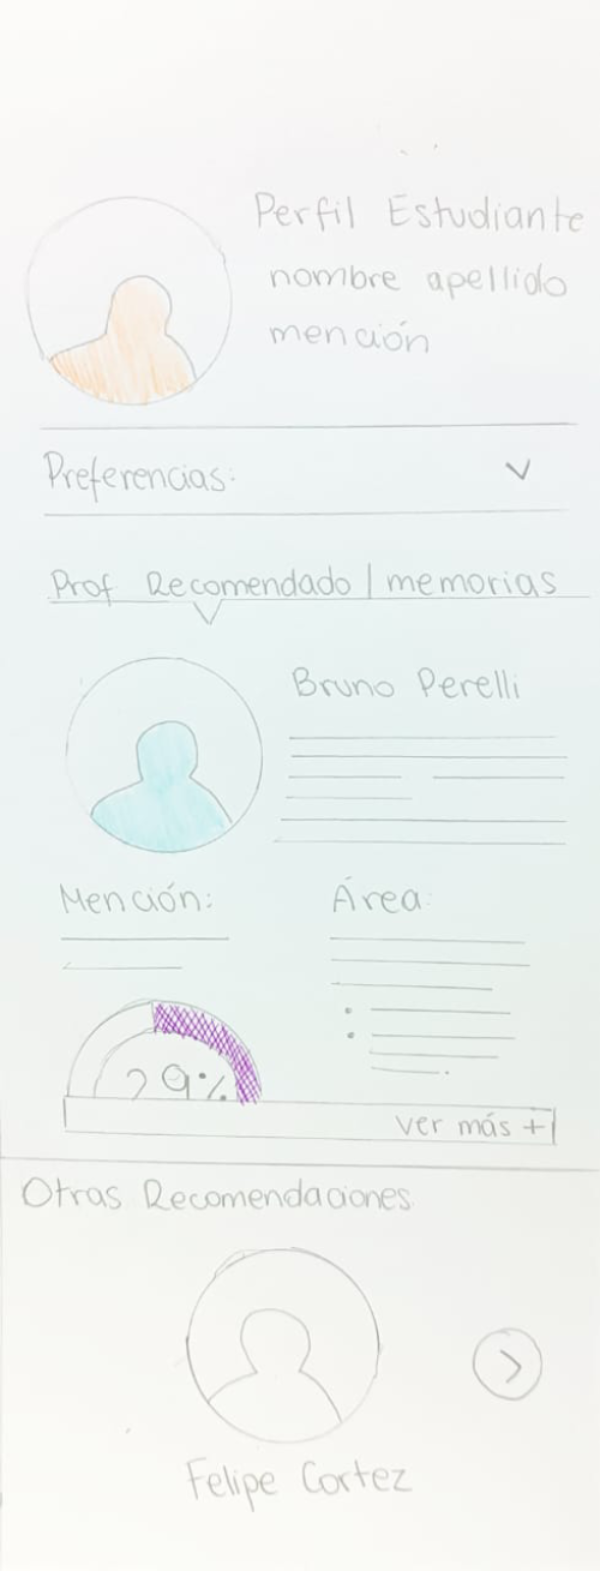 Perfil Estudiante
nombre apellido
mención
Preferencias:
Prof Recomendado | memorias
Bruno Perelli
Mención:
Área:
29%
ver más +
Otras Recomendaciones
Felipe Cortez